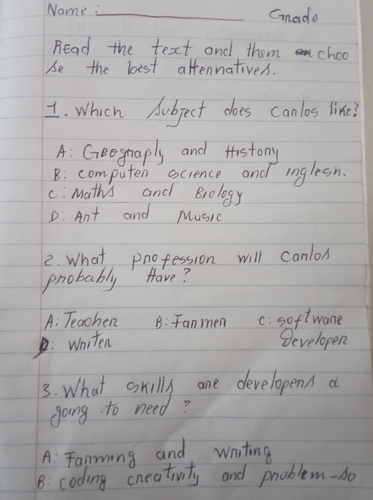 Name: Grade
Read the text and them choo
se the best alternatives.
1. Which subject does Carlos like?
A: Geography and History
B: computer science and inglesh.
C: Maths and Biology
D: Art and Music
2. What profession will Carlos
probably Have?
A: Teacher B: Farmer C: software
Developer
D: Writer
3. What skills are developers a
going to need?
A: Farming and writing
B: coding creativity and problem-so